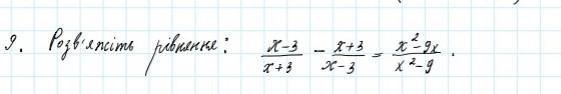 9. Розв'яжіть рівняння: \frac{x-3}{x+3} - \frac{x+3}{x-3} = \frac{x^2-9x}{x^2-9}.